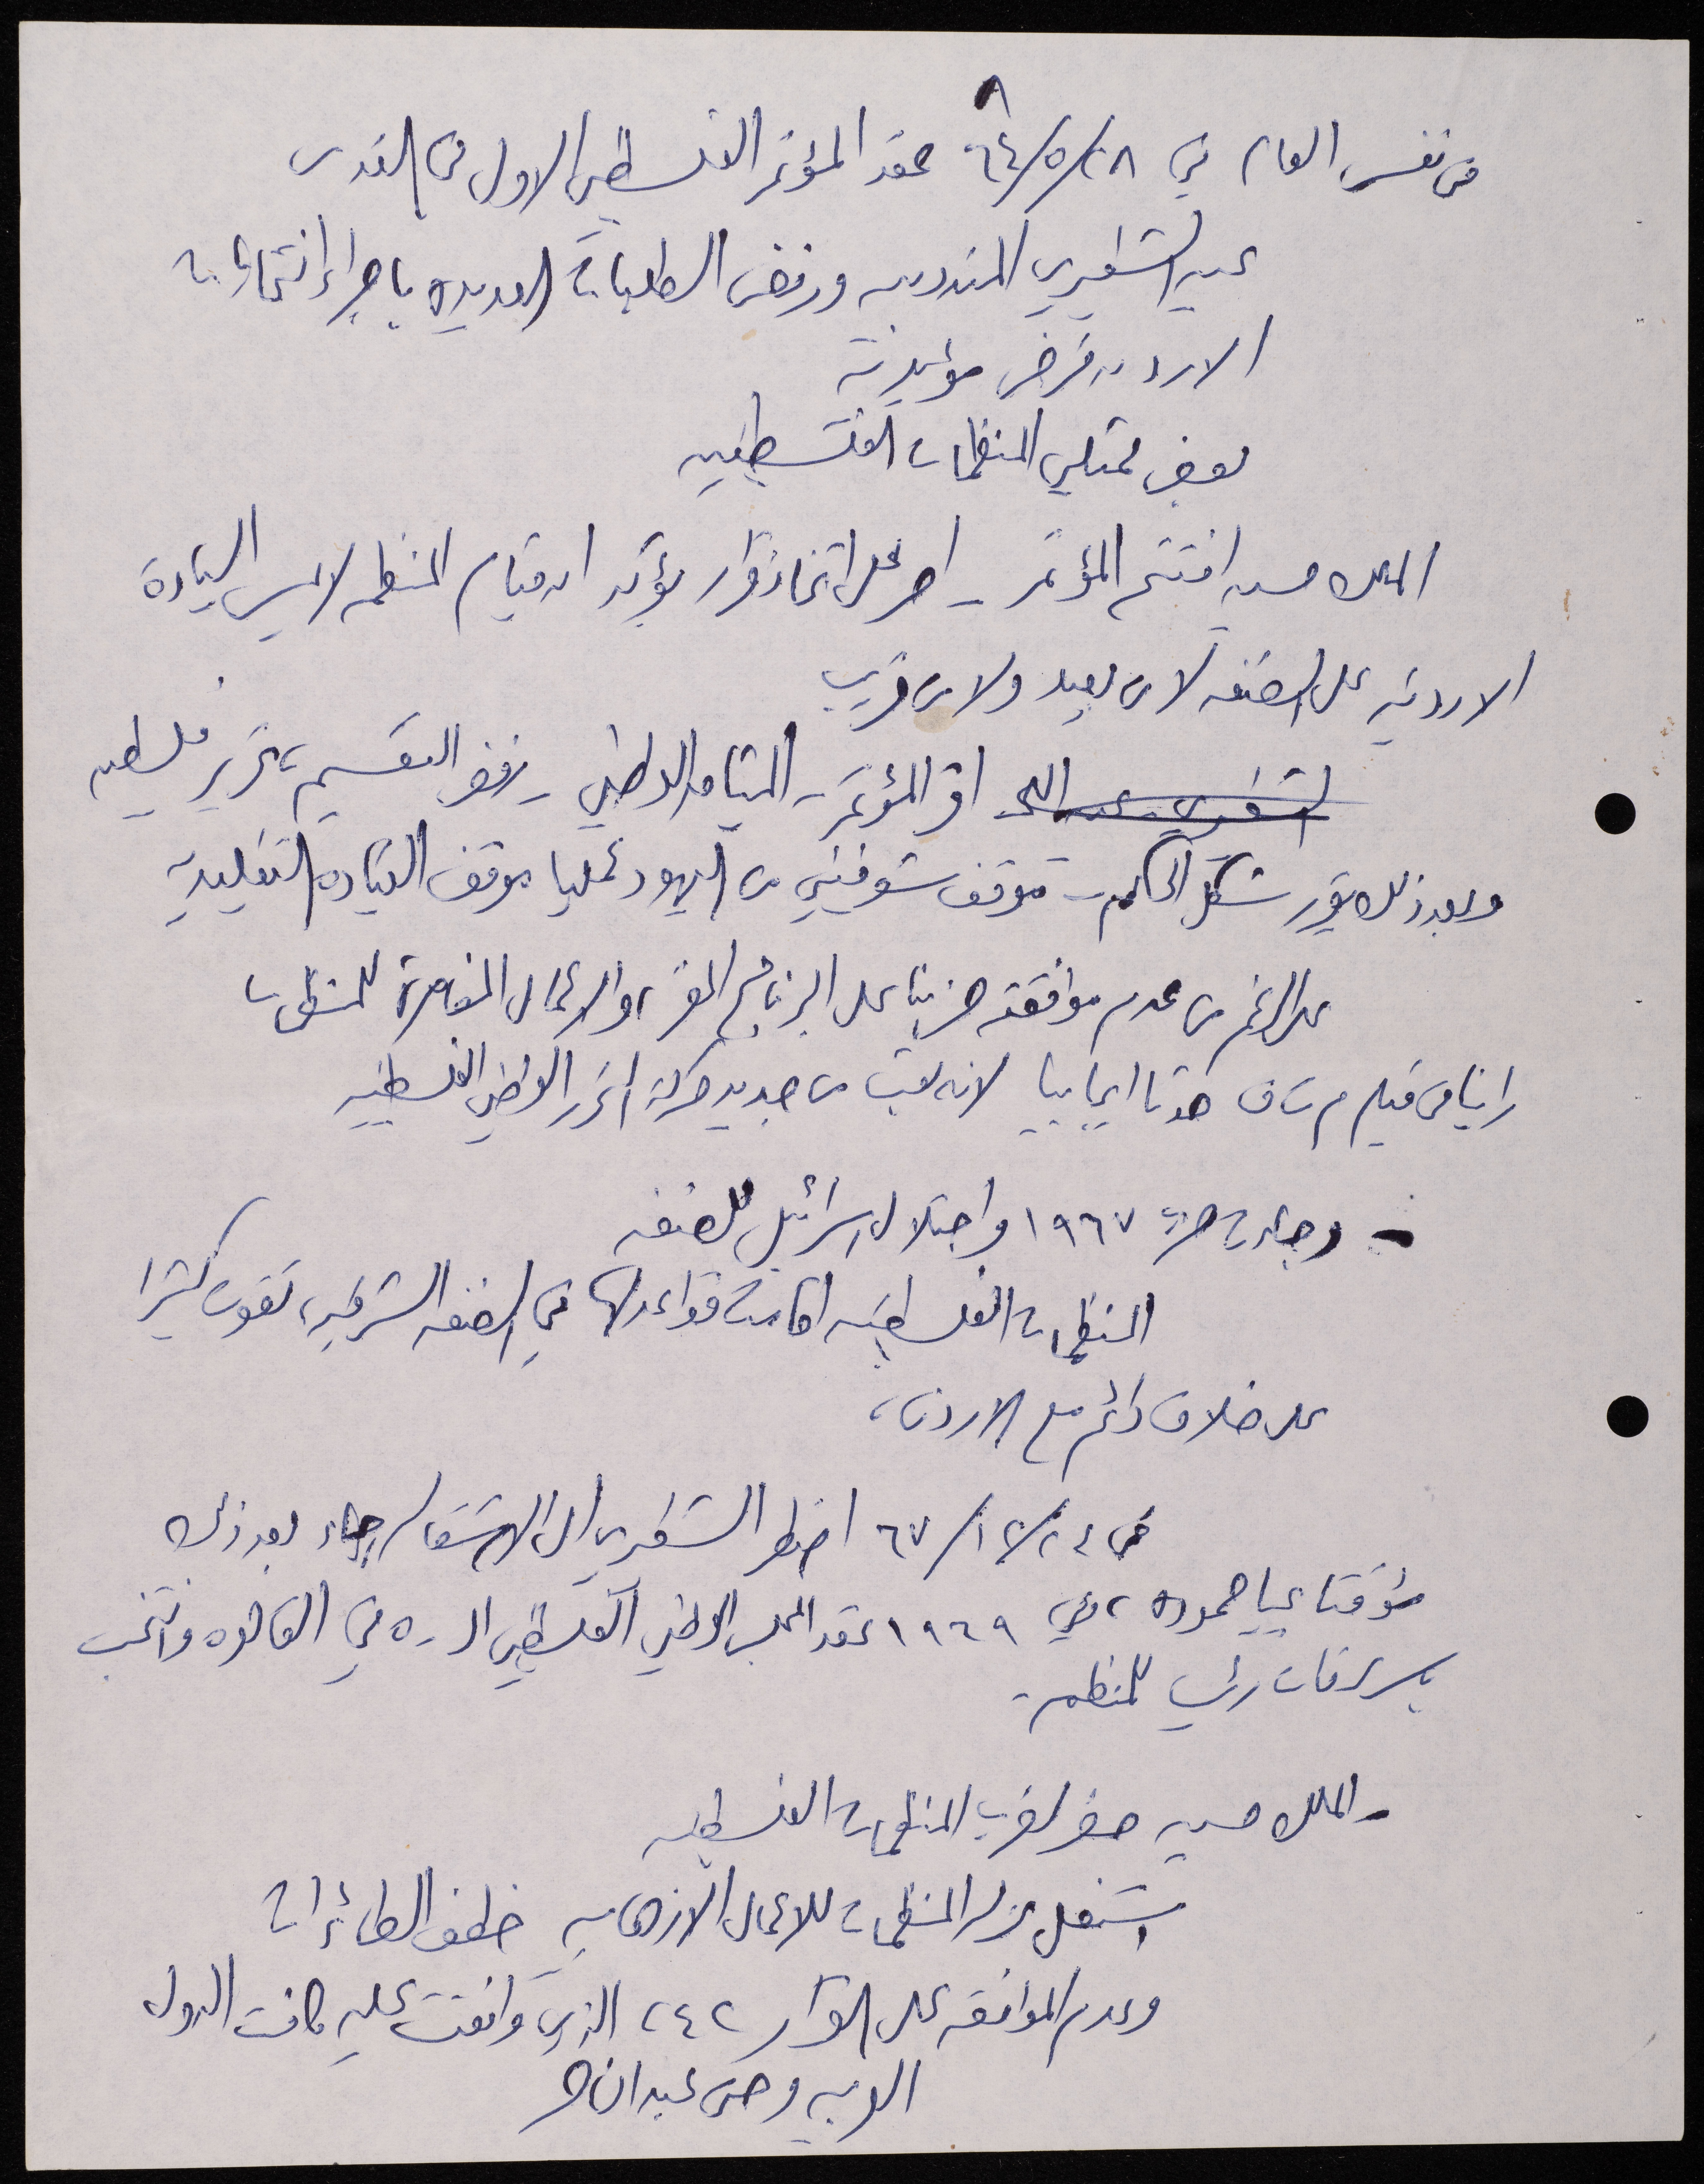 ٨
في نفس العام في ٢٨/٥/٦٤ عقد المؤتمر الفلسطيني الاول في القدس
عين الشقيري المندوبين ورفض الطلبات العديده باجراء انتخابات
الاردن فرض مؤيديه
بعض ممثلي المنظمات الفلسطينيه
الملك حسين افتتح المؤتمر - اصر على اتخاذ قرار يؤكد ان قيام المنظمه لا يمس السيادة
الاردنيه على الضفه لا من بعيد ولا من قريب
اقر المؤتمر - الميثاق الوطني - رفض التقسيم، تحرير فلسطين
وبعد ذلك يقرر شكل الحكم - موقف شوفيني من اليهود عمليا موقف القياده التقليديه
على الرغم من عدم موافقة حزبنا على البرنامج المقر، والاعمال المغامرة للمنظمات
راينا في قيام م ت ف حدثا ايجابيا لانه بعث من جديد حركة التحرر الوطني الفلسطينيه
- وجاءت حرب ١٩٦٧ واحتلال اسرائيل للضفه
المنظمات الفلسطينيه اقامت قواعدها في الضفه الشرقيه، تقوت كثيرا
على خلاف دائم مع الاردن،
في ٢٤/١٢/٦٧ اضطر الشقيري الى الاستقاله وجاء بعد ذلك
مؤقتا يحيا حموده، وفي ١٩٦٩ عقد المجلس الوطني الفلسطيني الـ ٥ في القاهره وانتخب
ياسر عرفات رئيسا للمنظمة -
- الملك حسين حضر لضرب المنظمات الفلسطينيه
استغل لجوء المنظمات للاعمال الارهابيه خطف الطائرات
وعدم الموافقه على القرار ٢٤٢ الذي وافقت عليه كافة الدول
العربيه وحتى عبد الناصر